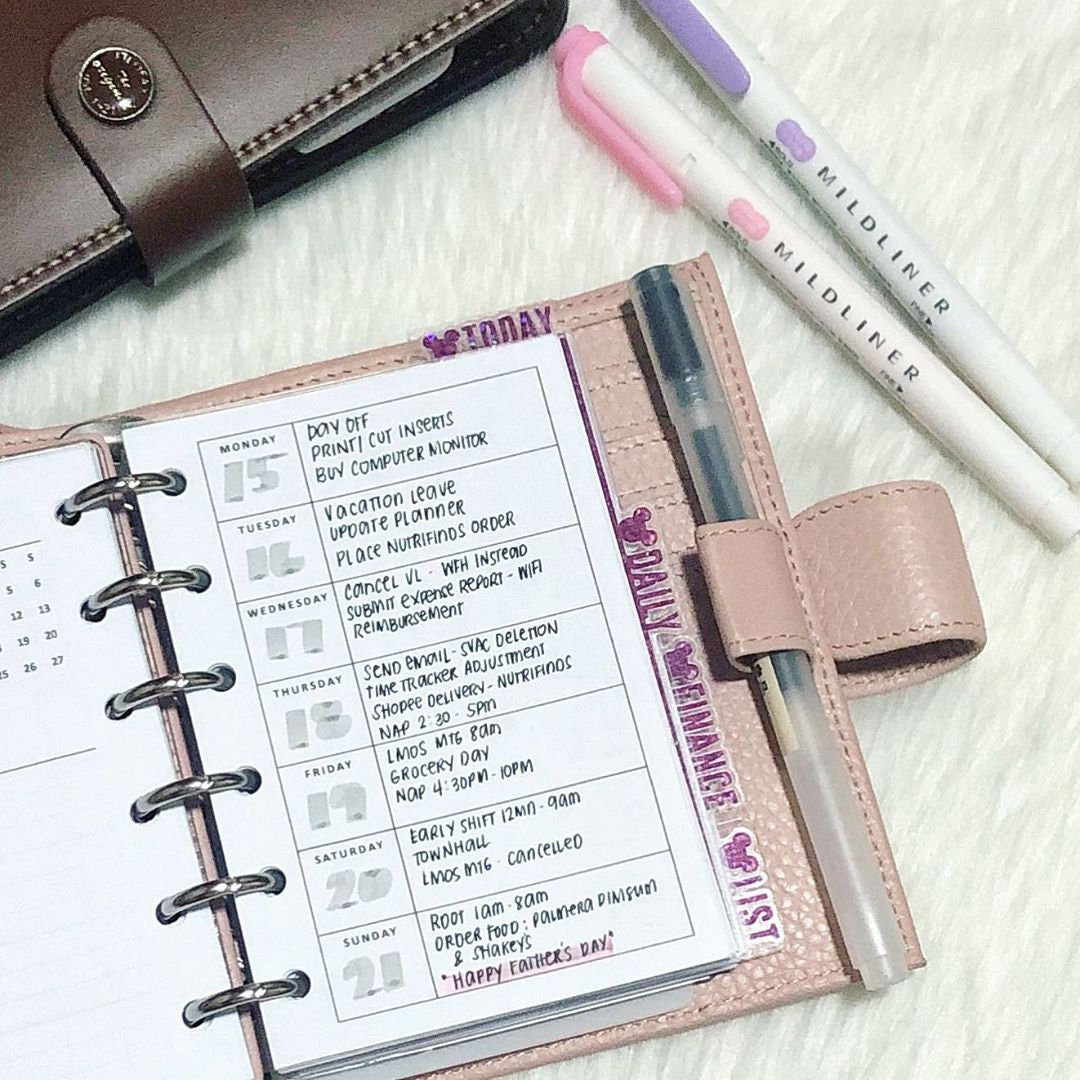 MILDLINER
FINE
MILDLINER
FINE
TODAY
DAILY
FINANCE
LIST
S S
5 6
12 13
19 20
25 26 27
MONDAY
15
DAY OFF
PRINT/ CUT INSERTS
BUY COMPUTER MONITOR
TUESDAY
16
VACATION LEAVE
UPDATE PLANNER
PLACE NUTRIFINDS ORDER
WEDNESDAY
17
CANCEL VL - WFH INSTEAD
SUBMIT EXPENSE REPORT - WIFI
REIMBURSEMENT
THURSDAY
18
SEND EMAIL - SVAC DELETION
TIME TRACKER ADJUSTMENT
SHOPEE DELIVERY - NUTRIFINDS
NAP 2:30 - 5PM
FRIDAY
19
LMOS MTG 8AM
GROCERY DAY
NAP 4:30PM - 10PM
SATURDAY
20
EARLY SHIFT 12MN - 9AM
TOWNHALL
LMOS MTG - CANCELLED
SUNDAY
21
ROOT 1AM - 8AM
ORDER FOOD: PALMERA DIMSUM
& SHAKEY'S
*HAPPY FATHER'S DAY*